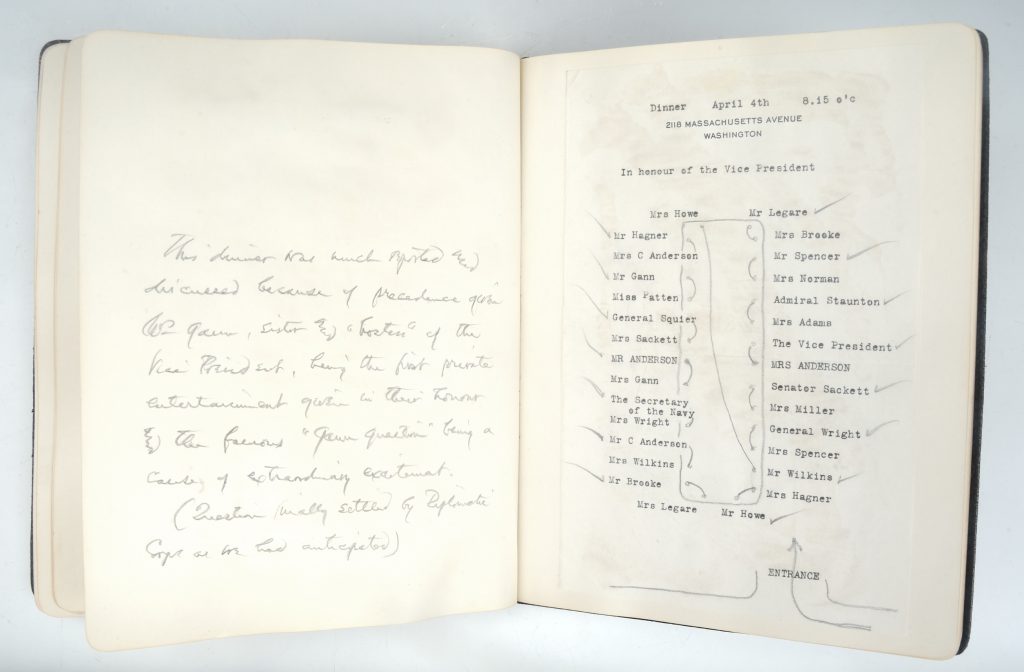 This dinner was much reported &
discussed because of precedence given
Mrs Gann, sister & "hostess" of the
Vice President, being the first private
entertainment given in their honour
& the famous "Gann question" being a
cause of extraordinary excitement.
(Question finally settled by Diplomatic
Corps as we had anticipated)
Dinner April 4th 8.15 o'c
2118 MASSACHUSETTS AVENUE
WASHINGTON
In honour of the Vice President
Mrs Howe Mr Legare
Mr Hagner Mrs Brooke
Mrs C Anderson Mr Spencer
Mr Gann Mrs Norman
Miss Patten Admiral Staunton
General Squier Mrs Adams
Mrs Sackett The Vice President
MR ANDERSON MRS ANDERSON
Mrs Gann Senator Sackett
The Secretary Mrs Miller
of the Navy
Mrs Wright General Wright
Mr C Anderson Mrs Spencer
Mrs Wilkins Mr Wilkins
Mr Brooke Mrs Hagner
Mrs Legare Mr Howe
ENTRANCE